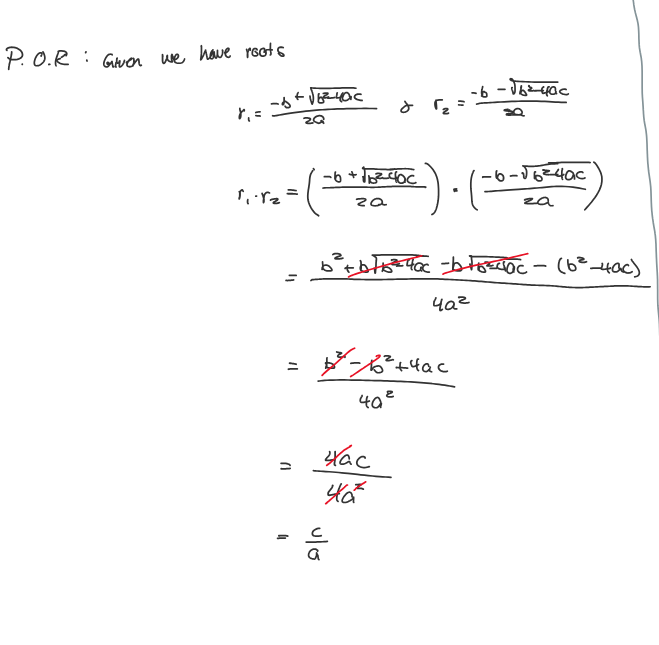 P.O.R : Given we have roots
r₁ = (-b + √(b²-4ac))/(2a) & r₂ = (-b - √(b²-4ac))/(2a)
r₁·r₂ = ((-b + √(b²-4ac))/(2a)) · ((-b - √(b²-4ac))/(2a))
= (b² + b√(b²-4ac) - b√(b²-4ac) - (b²-4ac))/(4a²)
= (b² - b² + 4ac)/(4a²)
= (4ac)/(4a²)
= c/a